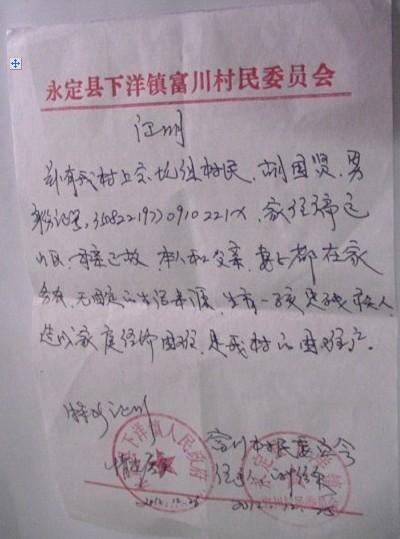 永定县下洋镇富川村民委员会
证明
兹有我村上 坑组村民,胡国贤,男
身份证号,35082219770910221X,家住
山区,母亲已故,本人和父亲,妻子都在家
务农,无固定的生活来源,生育一孩是残疾人
造成家庭经济困难,是我村的困难户。
特此证明
富川村民委员会
下洋镇人民政府
情况属实
2012.12.25
2012.12.25